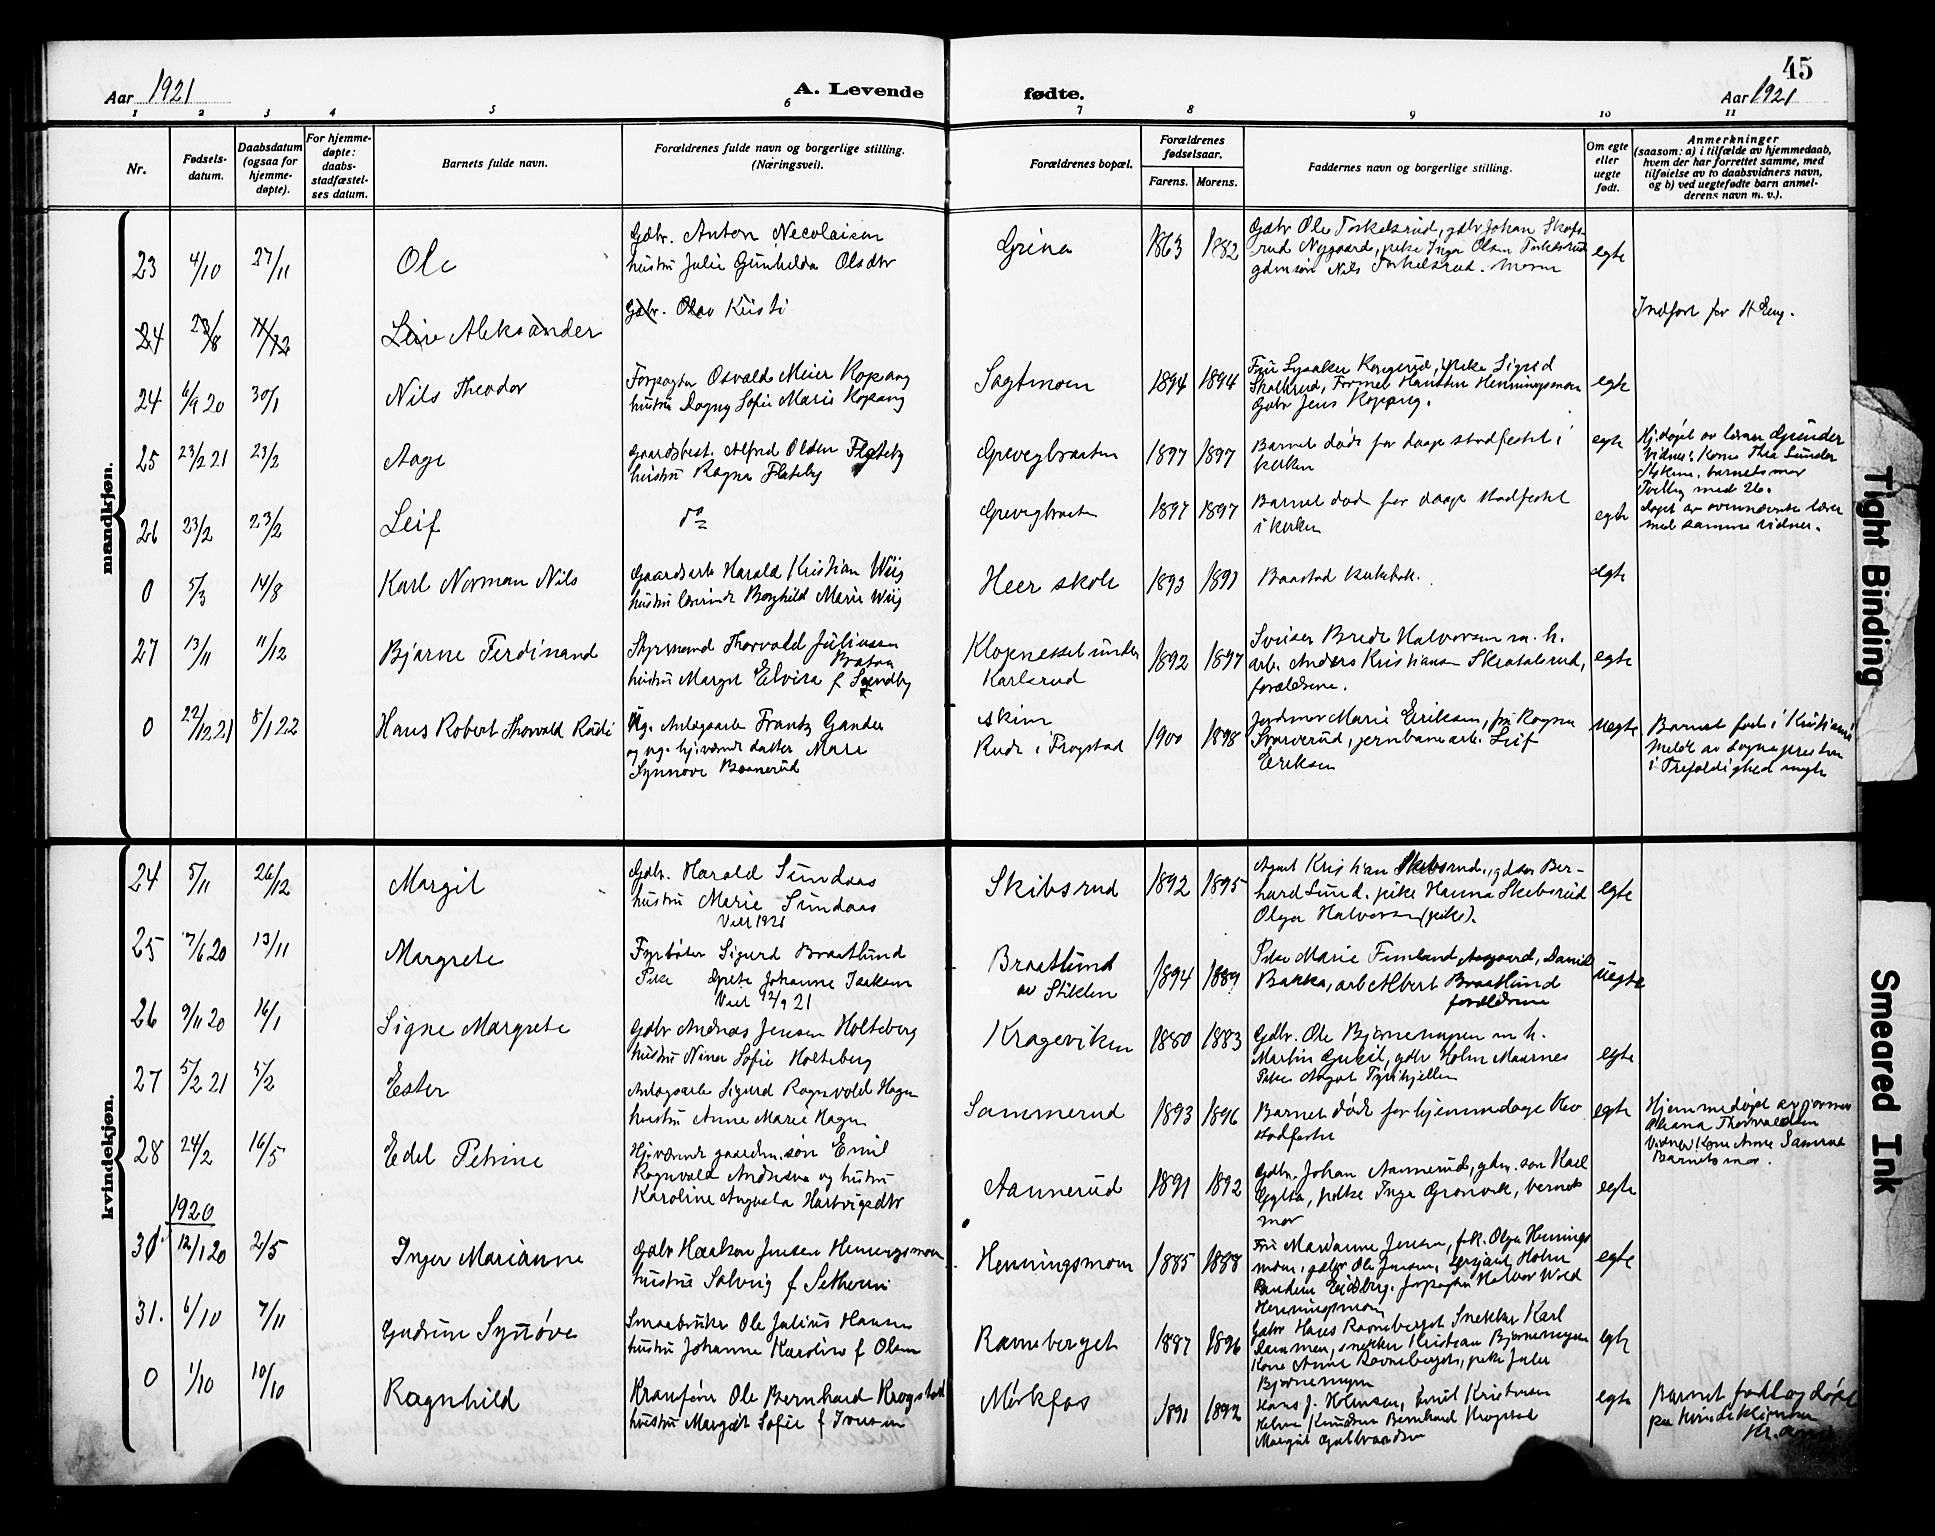 45
Aar 1921
A. Levende
fødte.
Aar 1921
1 2 3 4 5 6 7 8 9 10 11
Nr.
Fødsels-
datum.
Daabsdatum
(ogsaa for
hjemme-
døpte).
For hjemme-
døpte:
daabs-
stadfæstel-
ses datum.
Barnets fulde navn.
Forældrenes fulde navn og borgerlige stilling.
(Næringsvei).
Forældrenes bopæl.
Forældrenes
fødselsaar.
Farens. Morens.
Faddernes navn og borgerlige stilling.
Om egte
eller
uegte
født.
Anmerkninger
(saasom: a) i tilfælde av hjemmedaab,
hvem der har forrettet samme, med
tilføielse av to daabsvidners navn,
og b) ved uegtefødte barn anmel-
derens navn m. v.).
mandkjøn.
23 4/10 27/11 Ole
Gdbr. Anton Necolaisen
hustru Julie Gunhilda Olsdtr
Grina 1863 1882
Gdbr Ole Torkelsrud, gdbr Johan
rud Nygaard, pike Inga Olsen Torkelsrud
gdmsøn Nils Torkelsrud. Moren
egte
24 23/8 11/12 Leire Aleksander
Gdbr. Olav Kristi
Indført for
24 6/9 20 30/1 Nils Theodor
Forpagter Osvald Meier Kopang
hustru Dagny Sofie Marie Kopang
Sagtmoen 1894 1894
Fru Lysaker Kongerud, pike Sigrid
Hansten Henningsmoen
Gdbr Jens
egte
25 23/2 21 23/2 Aage
Gaardsbest. Alfred Olsen Flateby
hustru Ragna Flateby
Grevegbraaten 1897 1897
Barnet døde før daaps stadfestet i
kirken
egte
Hj.døpt av lærer Grinder
Vidner: Kone Thea Sunder
barnets mor
Tvilling med 26.
26 23/2 23/2 Leif
do
Grevegbraaten 1897 1897
Barnet død før daaps stadfestet
i kirken
egte
døpt av ovennævnte lærer
med samme vidner.
0 5/3 14/8 Karl Norman Nils
Gaardsarb Harald Kristian Wiig
hustru lærerinde Borghild Marie Wiig
Heer skole 1893 1891
Baastad kirkebok.
egte
27 13/11 11/12 Bjarne Ferdinand
Styrmand Thorvald Juliussen
Braten
hustru Margit Elvira f Sandby
Klopnesset under
Karlsrud
1892 1897
Sveiser Brede Halvorsen m. h.
arb. Anders Kristiansen Skratalsrud,
forældrene.
egte
0 22/12 21 8/1 22 Hans Robert Thorvald Rudi
Ug. Anlegsarb Frantz Gander
og ug. hj.værende datter Mari
Synnøve Baanerud
Askim
Rude i Trøgstad
1900 1898
Jordmor Marie Eriksen, fru Ragna
Svarverud, jernbanearb. Leif
Eriksen
uegte
Barnet født i Kristiania
Meldt av sognepresten
i Trefoldighed
kvindekjøn.
24 5/11 26/12 Margit
Gdbr. Harald Sundaas
hustru Marie Sundaas
Viet 1921
Skibsrud 1892 1895
Agent Kristian Skibsrud, gdsøn Ber-
hard Lund, pike Hanna Skibsrud
Olga Halvorsen (pike).
egte
25 7/6 20 13/11 Margrete
Fyrbøter Sigurd Braatlund
Pike Grete Johanne Isaksen
Viet 12/9 21
Braatlund
av Stiklen
1894 1889
Pike Marie Finland, Aasgaard, Daniel
Bakka, arb Albert Braatlund
forældrene
uegte
26 9/11 20 16/1 Signe Margrete
Gdbr Andreas Jensen Holteberg
hustru Nina Sofie Holteberg
Krageviken 1880 1883
Gdbr. Ole Bjørnemyren m h.
Martin Gukil, gdbr Holm Maarnes
Pike Aagot Tyrihjellen
egte
27 5/2 21 5/2 Ester
Anlægsarb Sigurd Ragnvald Hagen
hustru Anne Marie Hagen
Sammerud 1893 1896
Barnet døde før hjemmedaap blev
stadfestet
egte
Hjemmedøpt av jormor
Thorvaldsen
Vidner: Kone Anne Sammerud
Barnets mor.
28 24/2 16/5 Edel Petrine
Hj.værende gaardm. søn Emil
Ragnvald Andresen og hustru
Karoline Augusta Hartvigsdtr
Aannerud 1891 1892
Gdbr. Johan Aannerud, gdm. søn Karl
pike Inga Grønvik, barnets
mor
egte
1920
30 12/1 20 2/5 Inger Marianne
Gdbr Haakon Jensen Henningsmoen
hustru Solveig f Sethern
Henningsmoen 1885 1888
Fru Marianne Jensen, frk. Olga Hennings
moen, gdbr Ole Jensen, sersjant Holm
Randem Eidsberg. forpagter Halvor Wold
Henningsmoen
egte
31. 6/10 7/11 Gudrun Synøve
Smaabruker Ole Julius Hansen
hustru Johanne Karoline f Olsen
Ravneberget 1887 1896
Gdbr Hans Ravneberget Snekker Karl
Rammen, snekker Kristian Bjørnemyren
Kone Anne Ravneberget, pike Julie
Bjørnemyren
egte
0 1/10 10/10 Ragnhild
Kranfører Ole Bernhard Krogstad
hustru Margit Sofie f Iversen
Mørkfos 1891 1892
Hans J. Holmsen, Emil Kristensen
Helene Knudsen Bernhard Krogstad
Margit Gulbrandsen
egte
Barnet født og døpt
paa kvindeklinikken
Kr.ania
Tight Binding
Smeared Ink